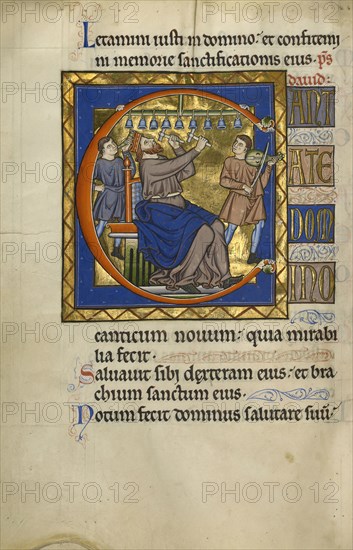 Letamini iusti in domino: et confitemi
ni memorie sanctificationis eius. ps
dauid:
C ANT
ATE
DOM
INO
canticum nouum: quia mirabi
lia fecit.
Saluauit sibi dextera eius: et bra
chium sanctum eius.
Notum fecit dominus salutare suũ:
PHOTO 12